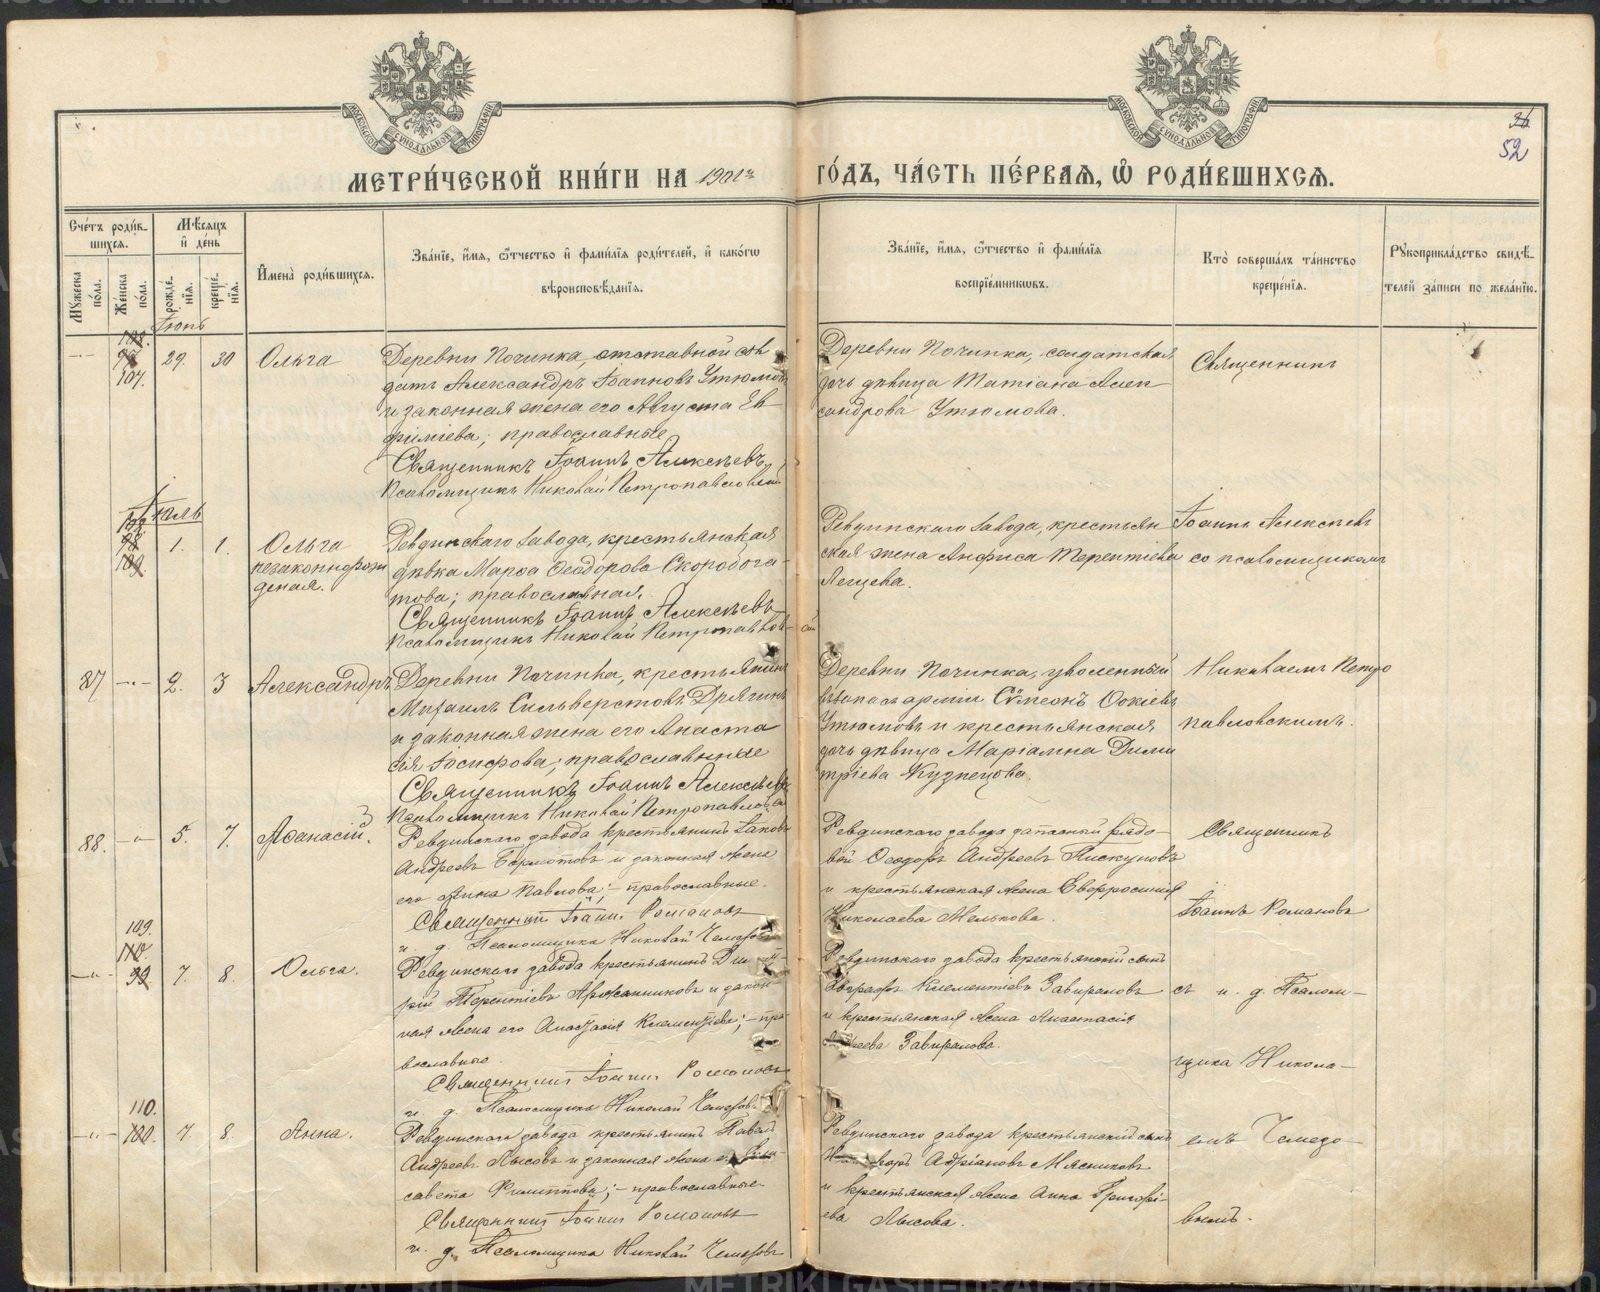 МЕТРИ́ЧЕСКОЙ КНИ́ГИ НА 1901 й
ГО́ДЪ, ЧА́СТЬ ПЕ́РВАѦ, Ѽ РОДИ́ВШИХСѦ.
52
Сче́тъ роди́в-
шихсѧ.
Мѣ́сѧцъ
и҆ де́нь
Мꙋ́жеска по́ла.
Же́нска по́ла.
рожде́-
нїѧ.
креще́-
нїѧ.
И҆мена̀ роди́вшихсѧ.
Зва́нїе, и҆́мѧ, ѻ҆́тчество и҆ фами́лїѧ роди́телей, и҆ како́гѡ
вѣроисповѣ́данїѧ.
Зва́нїе, и҆́мѧ, ѻ҆́тчество и҆ фами́лїѧ
воспрїе́мникѡвъ.
Кто̀ соверша́лъ та́инство
креще́нїѧ.
Рꙋкоприкла́дство свидѣ́-
телей за́писи по жела́нїю.
Іюнь
107. 29. 30 Ольга
Деревни Починка, отставной сол
датъ Александръ Іоанновъ Утюмовъ
и законная жена его Августа Ев
фиміева; православные
Священникъ Іоаннъ Алексѣевъ
Псаломщикъ Николай Петропавловскій
Деревни Починка, солдатская
дочь дѣвица Татіана Алек
сандрова Утюмова.
Священникъ
Іюль
1. 1. Ольга
незаконнорож
денная.
Ревдинскаго завода, крестьянская
дѣвка Марѳа Ѳеодорова Скоробога-
това; православная.
Священникъ Іоаннъ Алексѣевъ
Псаломщикъ Николай Петропавлов-
скій
Ревдинскаго завода, крестьян
ская жена Анфиса Терентіева
Лещева.
Іоаннъ Алексѣевъ
со псаломщикомъ
87 -"- 2. 3 Александръ
Деревни Починка, крестьянинъ
Михаилъ Сильверстовъ Дрягинъ
и законная жена его Анаста
сія Іосифова; православные
Священникъ Іоаннъ Алексѣевъ
Псаломщикъ Николай Петропавловскій
Деревни Починка, уволенный
въ запасъ арміи Сѵмеонъ
Утюмовъ и крестьянская
дочь дѣвица Маріамна Дими
тріева Кузнецова.
Николаемъ Петро
павловскимъ.
88. -"- 5. 7. Аѳанасій.
Ревдинскаго завода крестьянинъ Іаковъ
Андреевъ Бормотовъ и законная жена
его Анна Павлова; - православные.
Священникъ Іоаннъ Романовъ
и. д. Псаломщика Николай Чемезовъ
Ревдинскаго завода запасный рядо-
вой Ѳеодоръ Андреевъ Пискуновъ
и крестьянская жена Евфросинія
Николаева Мелькова.
Священникъ
Іоаннъ Романовъ
109.
-"- 7. 8. Ольга.
Ревдинскаго завода крестьянинъ Дими-
трій Терентіевъ и закон-
ная жена его Анастасія Климентіева; - пра-
вославные.
Священникъ Іоаннъ Романовъ
и. д. Псаломщика Николай Чемезовъ
Ревдинскаго завода крестьянскій сынъ
Евграфъ Климентіевъ Завираловъ
и крестьянская жена Анастасія
Завиралова.
съ и. д. Псалом-
щика Никола-
110.
-"- 7. 8. Анна.
Ревдинскаго завода крестьянинъ Павелъ
Андреевъ Лысовъ и законная жена его Ели-
савета Филиппова; - православные.
Священникъ Іоаннъ Романовъ
и. д. Псаломщика Николай Чемезовъ
Ревдинскаго завода крестьянскій сынъ
Адріановъ Мясниковъ
и крестьянская жена Анна Григорі-
ева Лысова.
емъ Чемезо-
вымъ.